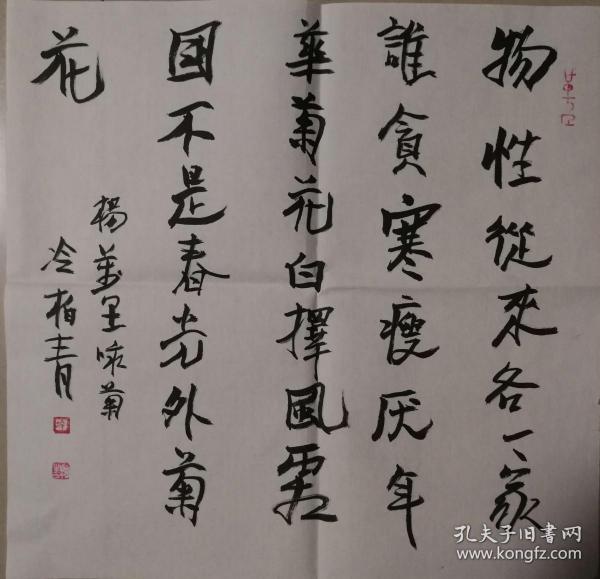 物性從來各一家
誰貪寒瘦厌年
華菊花白擇風霜
國不是春光外菊
花
楊萬里咏菊
冷柏青
孔夫子旧书网
www.kongfz.com